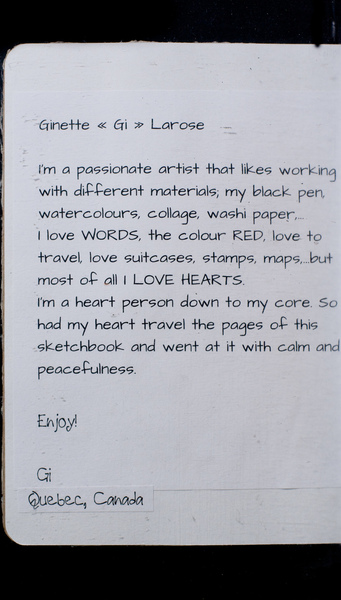 Ginette « Gi » Larose
I'm a passionate artist that likes working
with different materials; my black pen,
watercolours, collage, washi paper,...
I love WORDS, the colour RED, love to
travel, love suitcases, stamps, maps,...but
most of all I LOVE HEARTS.
I'm a heart person down to my core. So
had my heart travel the pages of this
sketchbook and went at it with calm and
peacefulness.
Enjoy!
Gi
Quebec, Canada